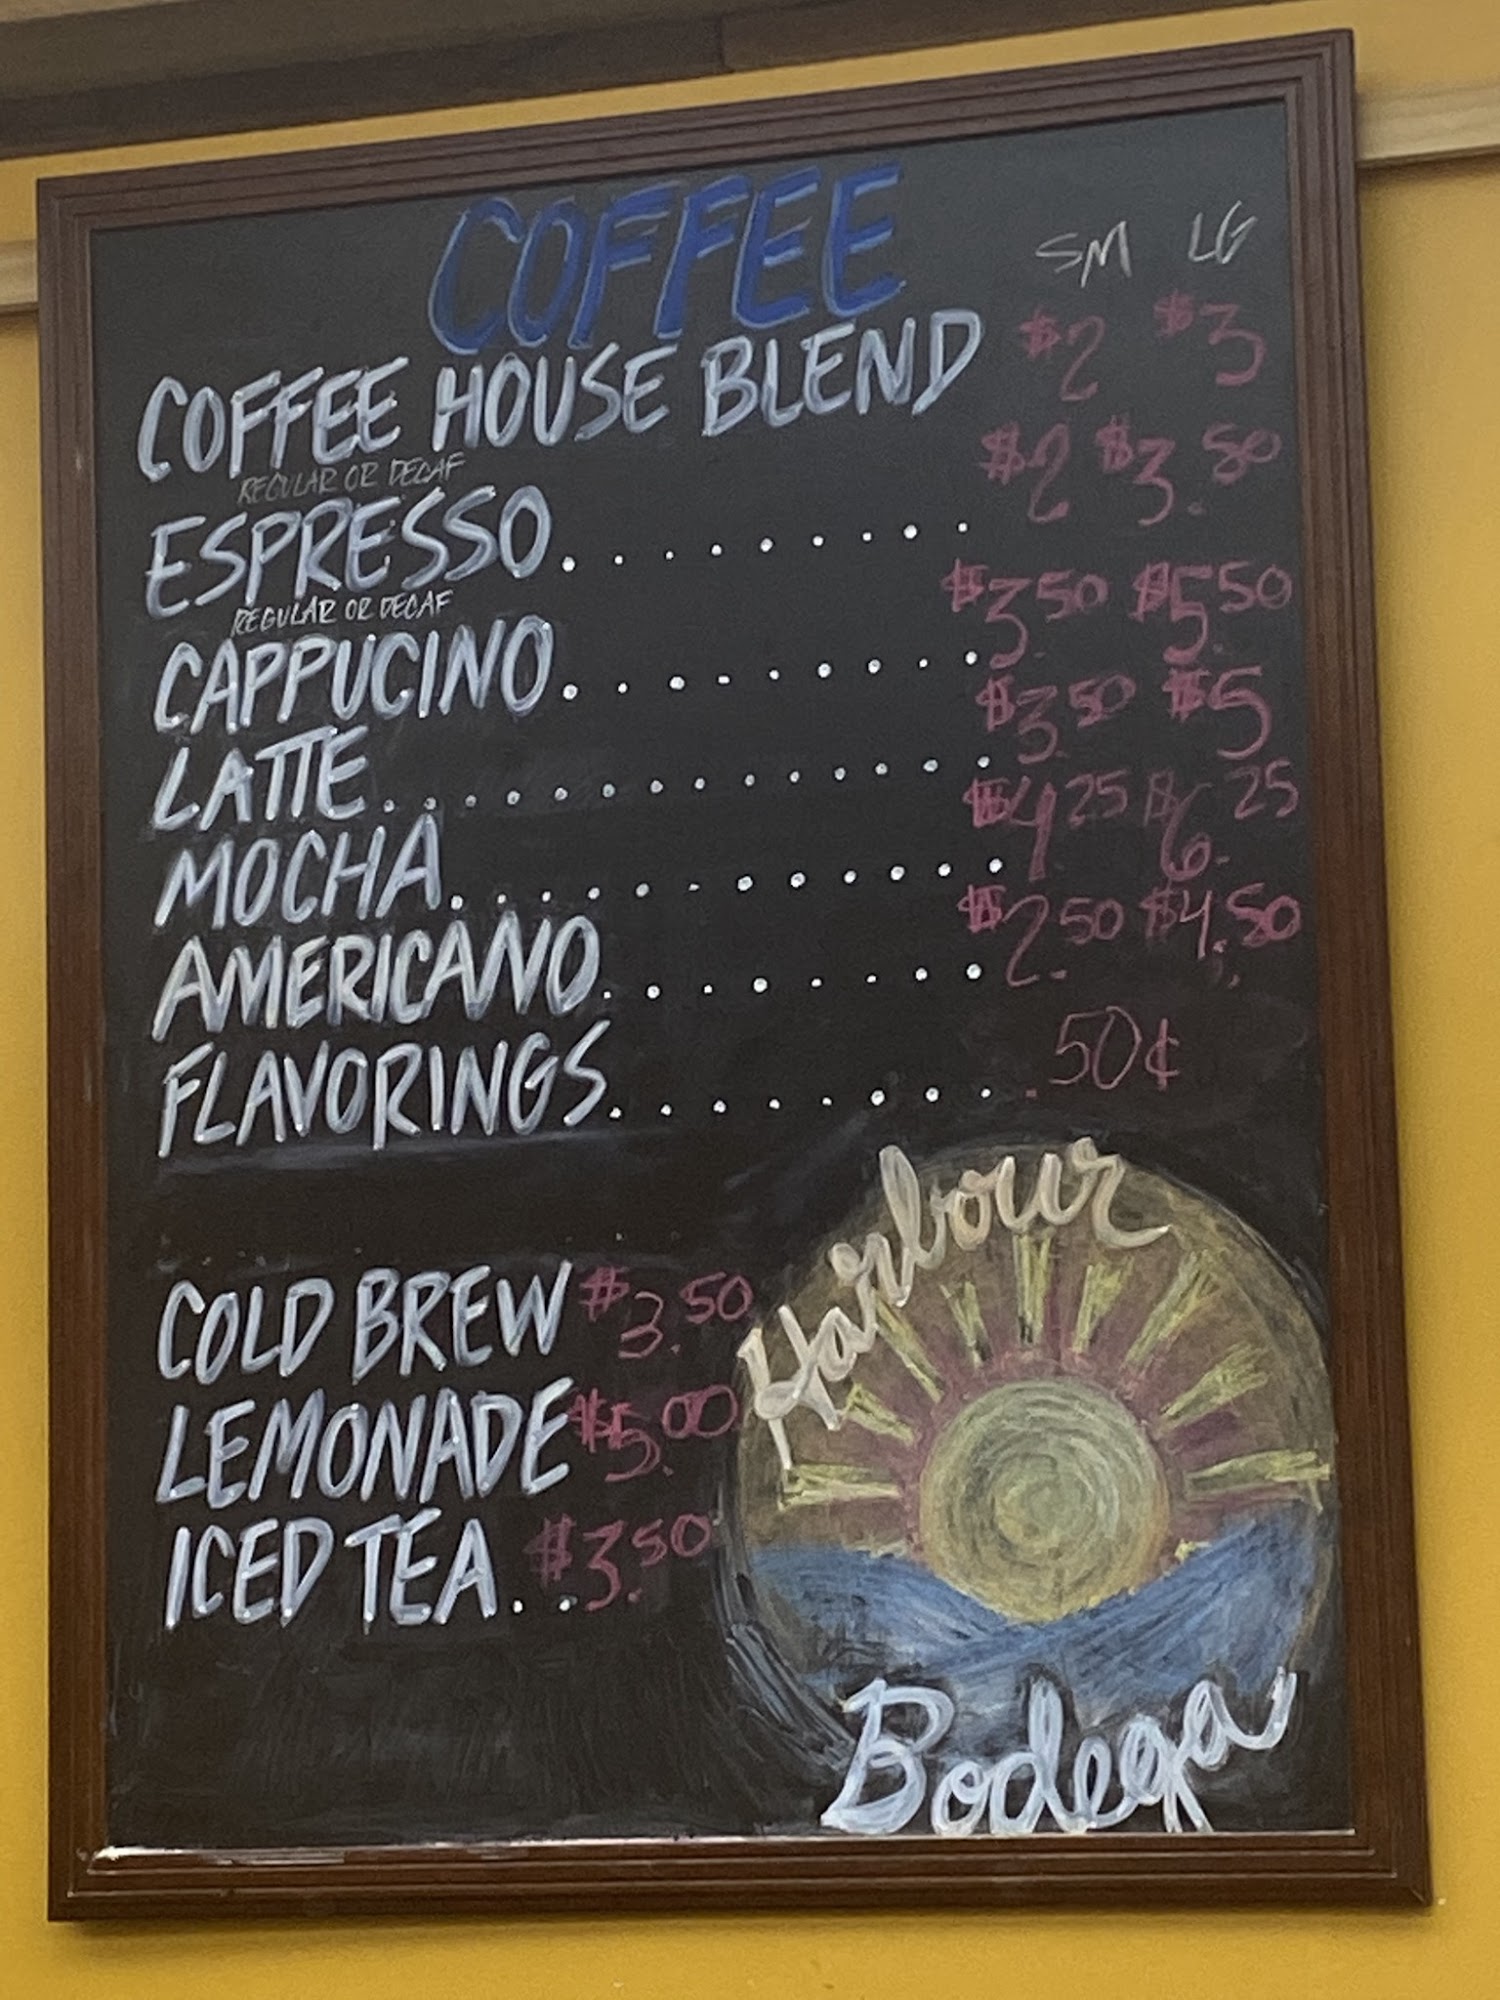 COFFEE SM LG
COFFEE HOUSE BLEND $2 $3
REGULAR OR DECAF
ESPRESSO......... $2 $3.50
REGULAR OR DECAF
CAPPUCINO......... $3.50 $5.50
LATTE............ $3.50 $5
MOCHA............ $4.25 $6.25
AMERICANO........ $2.50 $4.50
FLAVORINGS......... .50¢
COLD BREW $3.50
LEMONADE $5.00
ICED TEA.. $3.50
Harbour
Bodega